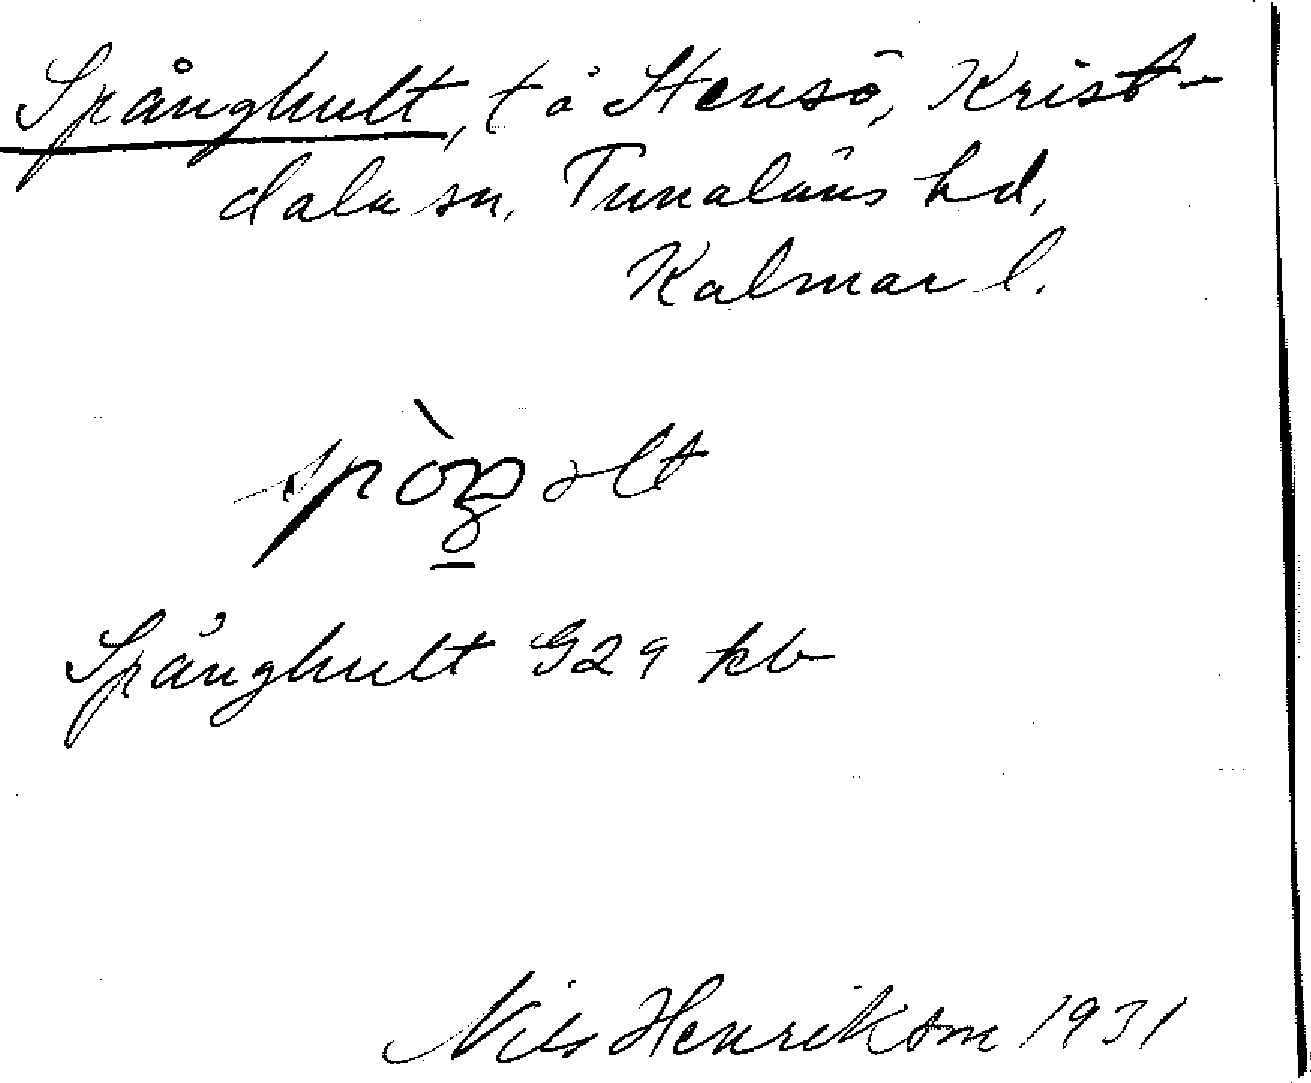 Spånghult, t å Stensö, Krist-
dala sn, Tunaläns hd,
Kalmar l.
Spånghult G29 kb
Nils Henrikson 1931